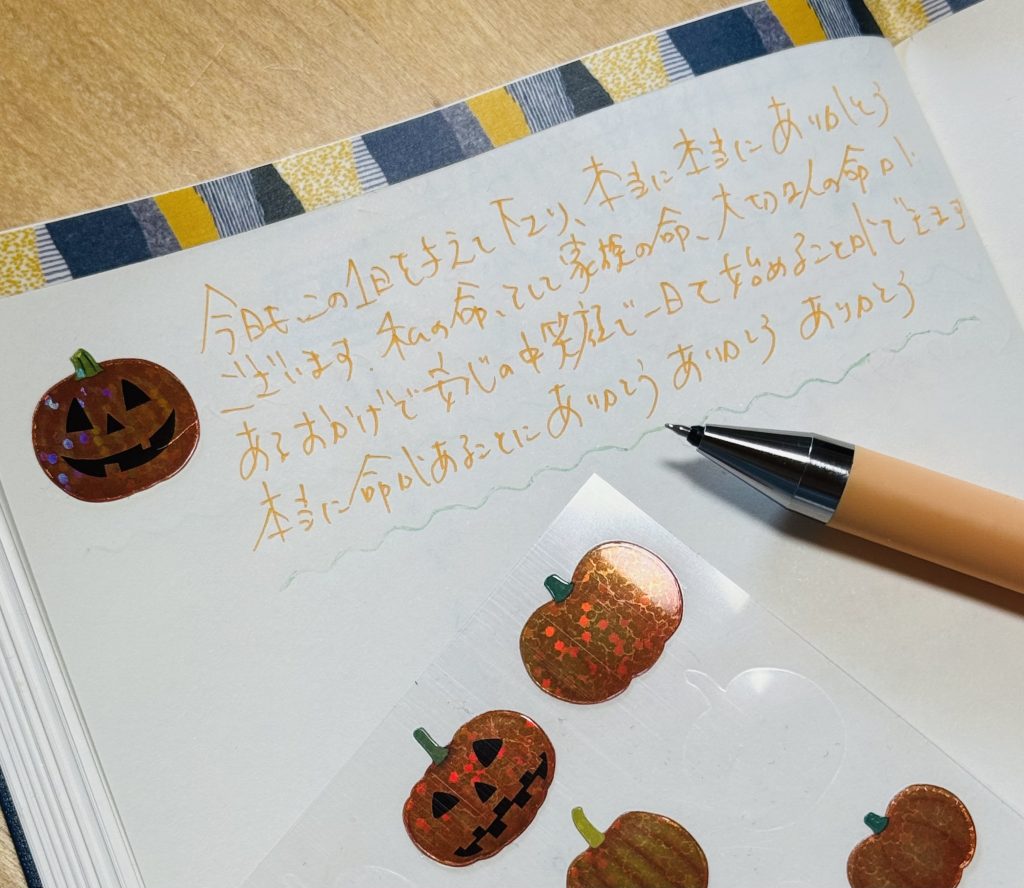 今日も、この1日を与えて下さり、本当に本当にありがとう
ございます。私の命、そして家族の命、大切な人の命が
あるおかげで安心の中笑顔で一日を始めることができます
本当に命があることにありがとう ありがとう ありがとう